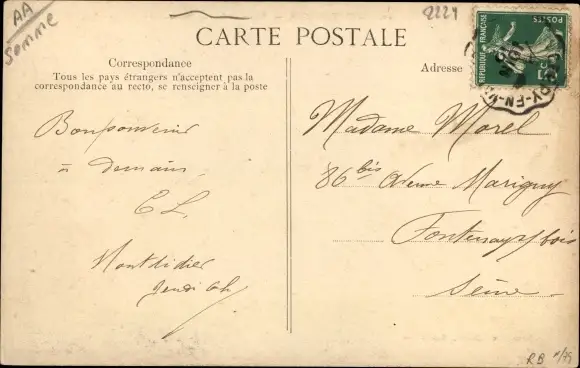 AA
Somme
2224
CARTE POSTALE
Correspondance
Tous les pays étrangers n'acceptent pas la
correspondance au recto, se renseigner à la poste
Adresse
REPUBLIQUE FRANÇAISE
POSTES
5c
Bonsouvenir
à demain,
E L.
Montdidier
Jeudi 6h
Madame Morel
86 bis Avenue Marigny
Fontenay s/ bois
Seine
RB